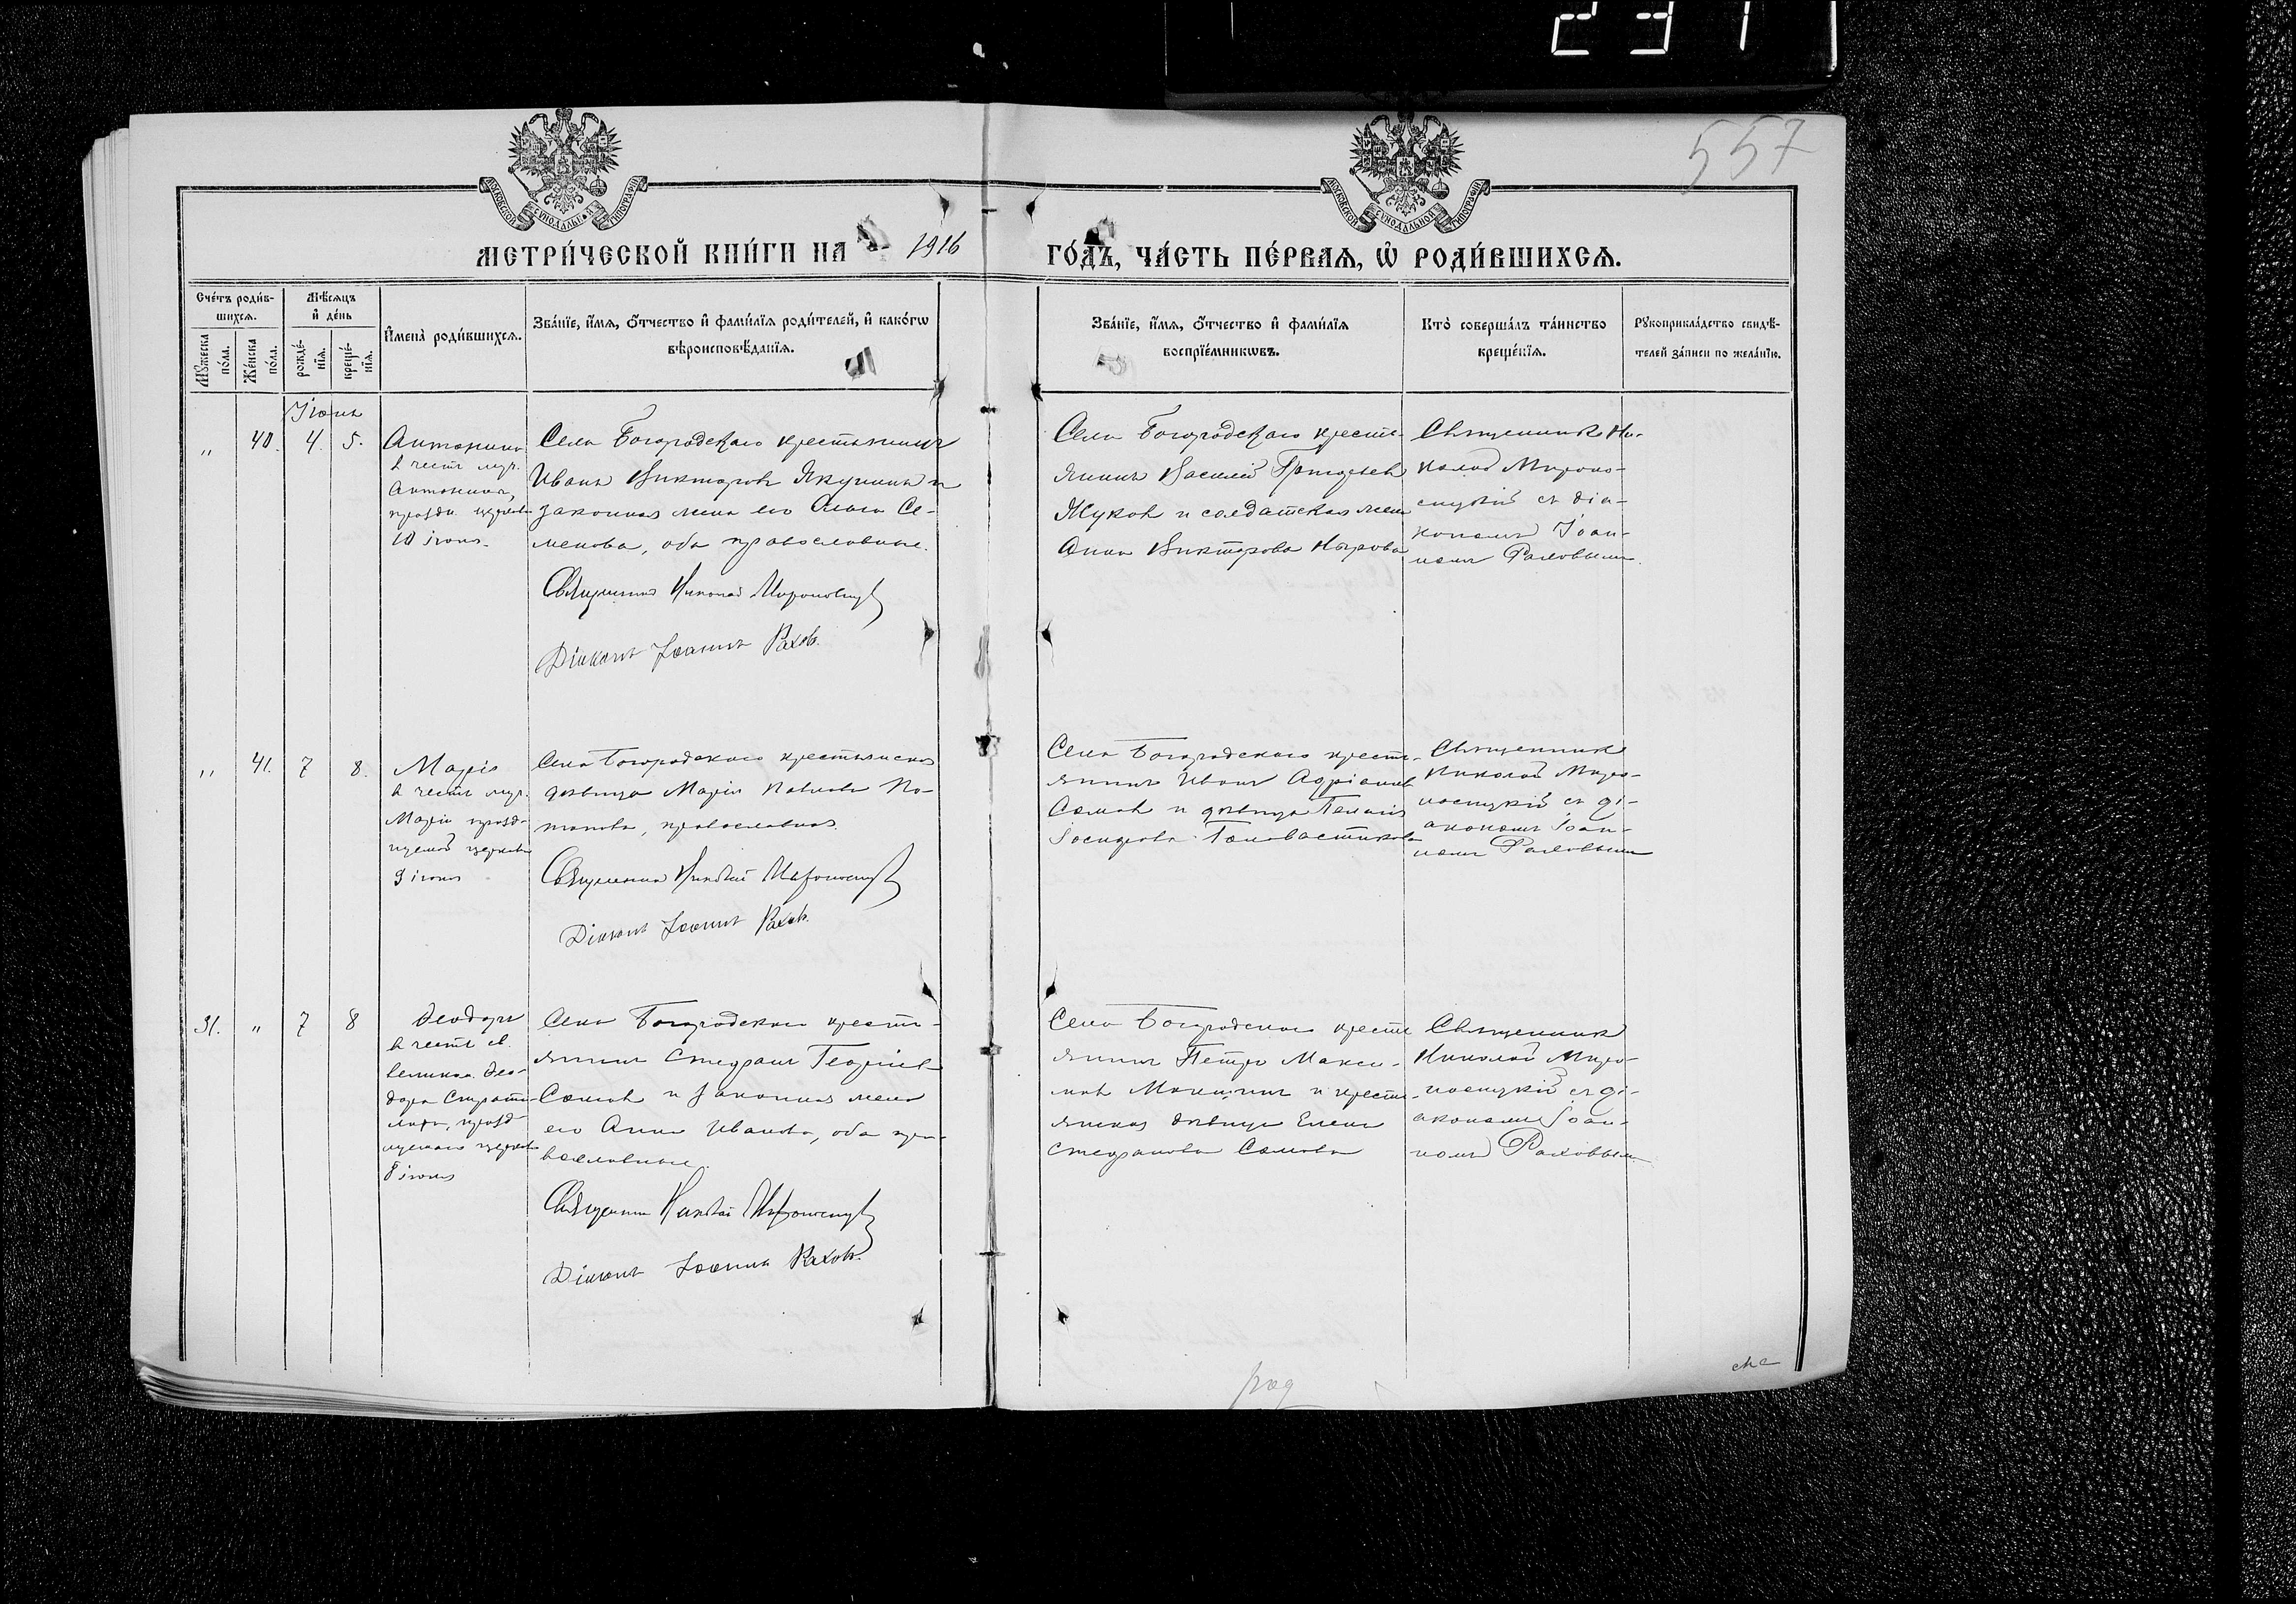 231
557
МОСКОВСКОЙ СѴНОДАЛЬНОЙ ТИПОГРАФІИ
МОСКОВСКОЙ СѴНОДАЛЬНОЙ ТИПОГРАФІИ
МЕТРИ́ЧЕСКОЙ КНИ́ГИ НА 1916
ГО́ДЪ, ЧА́СТЬ ПЕ́РВАѦ, Ѽ РОДИ́ВШИХСѦ.
Сче́тъ роди́в-
шихсѧ.
Мꙋ́жеска
по́ла.
Же́нска
по́ла.
Мѣ́сѧцъ
и҆ де́нь
рожде́-
нїѧ.
креще́-
нїѧ.
И҆мена̀ роди́вшихсѧ.
Зва́нїе, и҆́мѧ, ѻ҆́тчество и҆ фами́лїѧ роди́телей, и҆ како́гѡ
вѣроисповѣ́данїѧ.
Зва́нїе, и҆́мѧ, ѻ҆́тчество и҆ фами́лїѧ
воспрїе́мникѡвъ.
Кто̀ соверша́лъ та́инство
креще́нїѧ.
Рꙋкоприкла́дство свидѣ́-
телей за́писи по жела́нїю.
Іюнь
" 40. 4. 5.
Антонина
в честь муч.
Антонины,
празд. церковью
10 іюня.
Села Богородскаго крестьянинъ
Иванъ Викторовъ Якунинъ и
законная жена его Ольга Се-
менова, оба православные.
Священникъ Николай Мироносицкій
Діаконъ Іоаннъ Рахов.
Села Богородскаго кресть-
янинъ Василій Григорьев
Жуков и солдатская жена
Анна Викторова
Священник Ни-
колай Мироно-
сицкій съ діа-
кономъ Іоан-
номъ Раховымъ.
" 41. 7 8.
Марія
в честь муч.
Маріи празд-
нуемой церковью
9 іюня
Села Богородскаго крестьянская
девица Марія Павлова По-
тапова, православная.
Священникъ Николай Мироносицкій
Діаконъ Іоаннъ Рахов.
Села Богородскаго кресть-
янинъ Иванъ Адріановъ
Сомов и девица Пелагія
Іосифова Головастикова
Священник
Николай Миро-
носицкій съ ді-
акономъ Іоан-
номъ Раховымъ
31. " 7 8
Ѳеодоръ
в честь св.
великом. Ѳео-
дора Страти-
лата, празд-
нуемаго церковью
8 іюня
Села Богородскаго кресть-
янинъ Стефанъ Георгіев
Сомов и законная жена
его Анна Иванова, оба пра-
вославные.
Священникъ Николай Мироносицкій
Діаконъ Іоаннъ Рахов.
Села Богородскаго кресть
янинъ Петръ Макси-
мов и кресть-
янская девица Елена
Стефанова Сомова
Священник
Николай Миро-
носицкій съ ді-
акономъ Іоан-
номъ Раховымъ